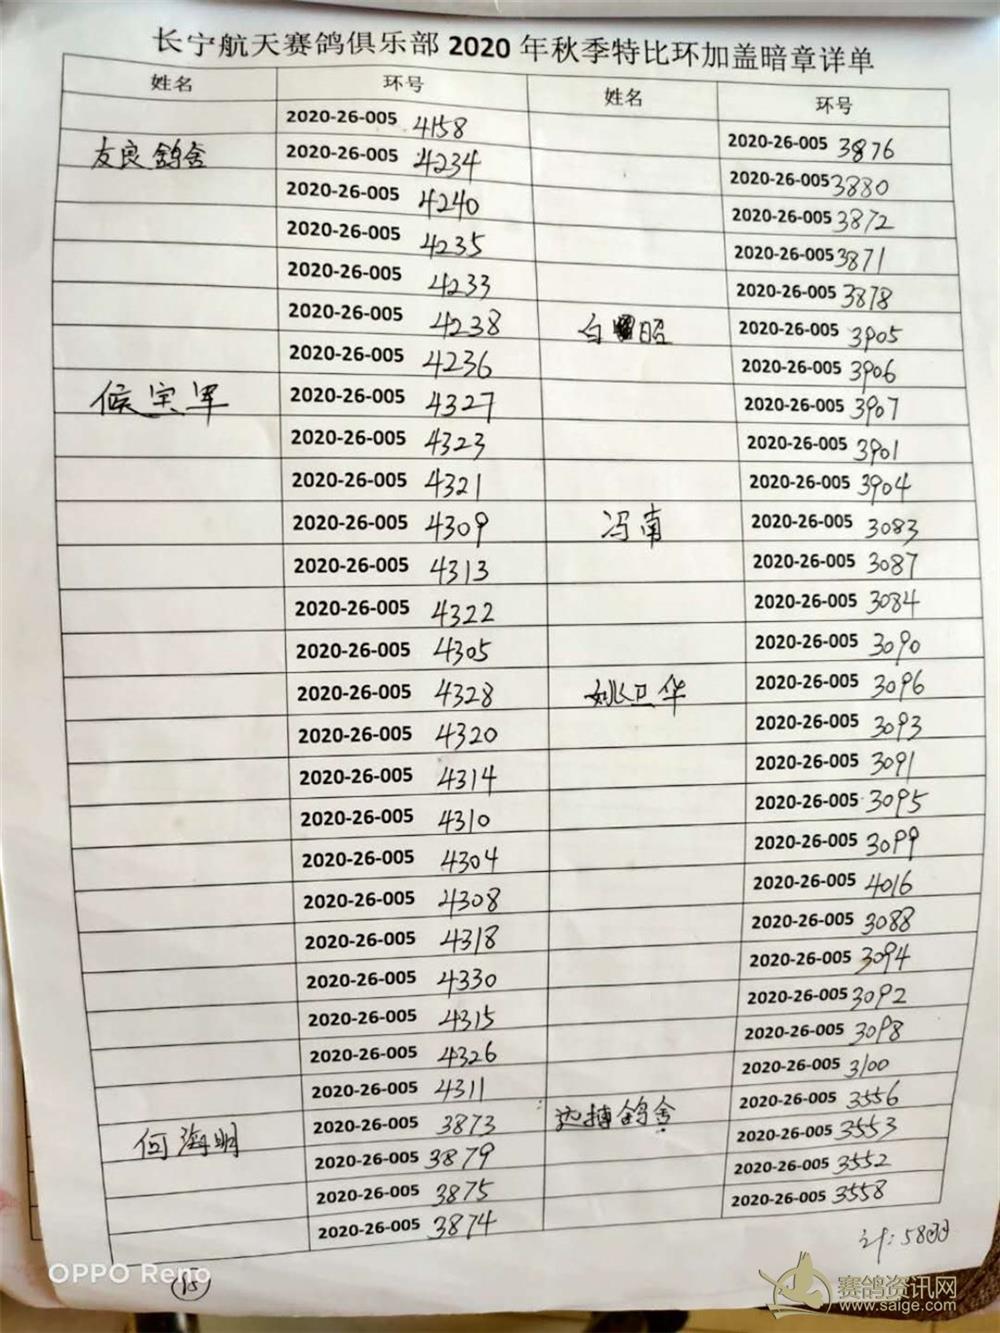 长宁航天赛鸽俱乐部 2020 年秋季特比环加盖暗章详单
姓名 环号 姓名 环号
2020-26-005 4158 2020-26-005 3876
友良鸽舍 2020-26-005 4234 2020-26-005 3880
2020-26-005 4240 2020-26-005 3872
2020-26-005 4235 2020-26-005 3871
2020-26-005 4233 2020-26-005 3878
2020-26-005 4238 白 昭 2020-26-005 3905
2020-26-005 4236 2020-26-005 3906
侯宝军 2020-26-005 4327 2020-26-005 3907
2020-26-005 4323 2020-26-005 3901
2020-26-005 4321 2020-26-005 3904
2020-26-005 4309 冯南 2020-26-005 3083
2020-26-005 4313 2020-26-005 3087
2020-26-005 4322 2020-26-005 3084
2020-26-005 4305 2020-26-005 3090
2020-26-005 4328 姚卫华 2020-26-005 3096
2020-26-005 4320 2020-26-005 3093
2020-26-005 4314 2020-26-005 3091
2020-26-005 4310 2020-26-005 3095
2020-26-005 4304 2020-26-005 3099
2020-26-005 4308 2020-26-005 4016
2020-26-005 4318 2020-26-005 3088
2020-26-005 4330 2020-26-005 3094
2020-26-005 4315 2020-26-005 3092
2020-26-005 4326 2020-26-005 3098
2020-26-005 4311 2020-26-005 3100
何海明 2020-26-005 3873 鸽舍 2020-26-005 3556
2020-26-005 3879 2020-26-005 3553
2020-26-005 3875 2020-26-005 3552
2020-26-005 3874 2020-26-005 3558
计:58羽
15
OPPO Reno
赛鸽资讯网
www.saige.com